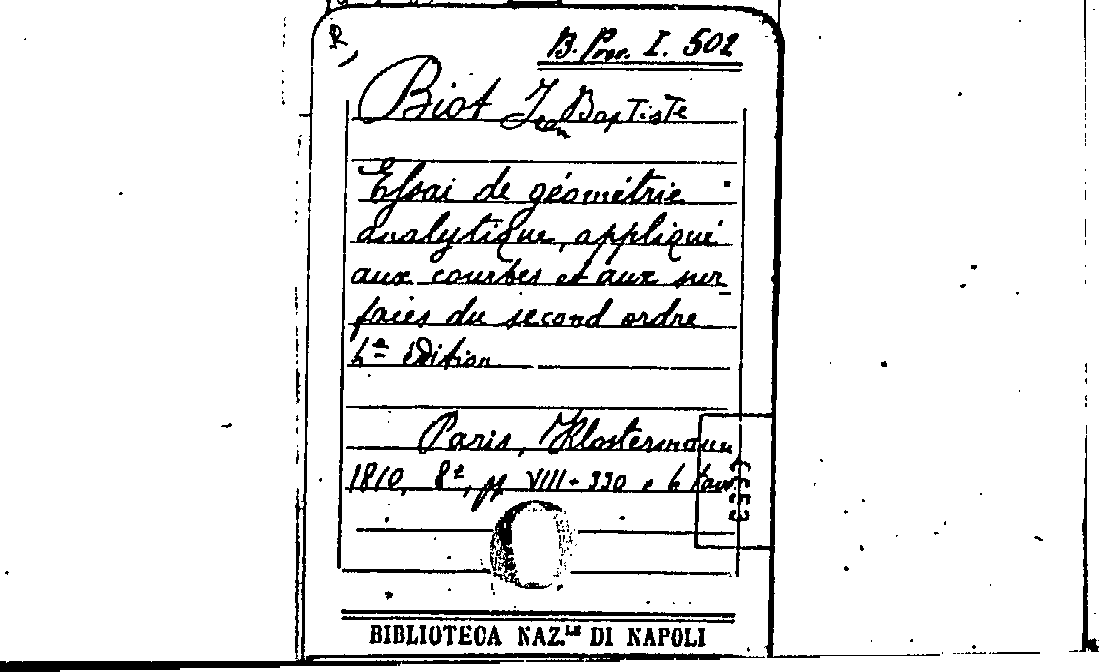 R
B. Prov. I. 502
Biot Jean Baptiste
Essai de géométrie
analytique, appliqué
aux courbes et aux sur_
faces du second ordre
4ª édition
Paris, Klostermann
1810, 8º, pp VIII-330 e 4 tav.
BIBLIOTECA NAZ.LE DI NAPOLI